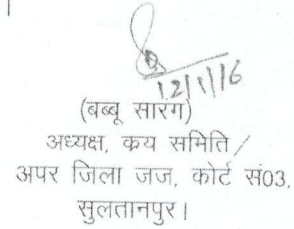 12/1/16
(बब्बू सारंग)
अध्यक्ष, कय समिति /
अपर जिला जज, कोर्ट सं03,
सुलतानपुर।